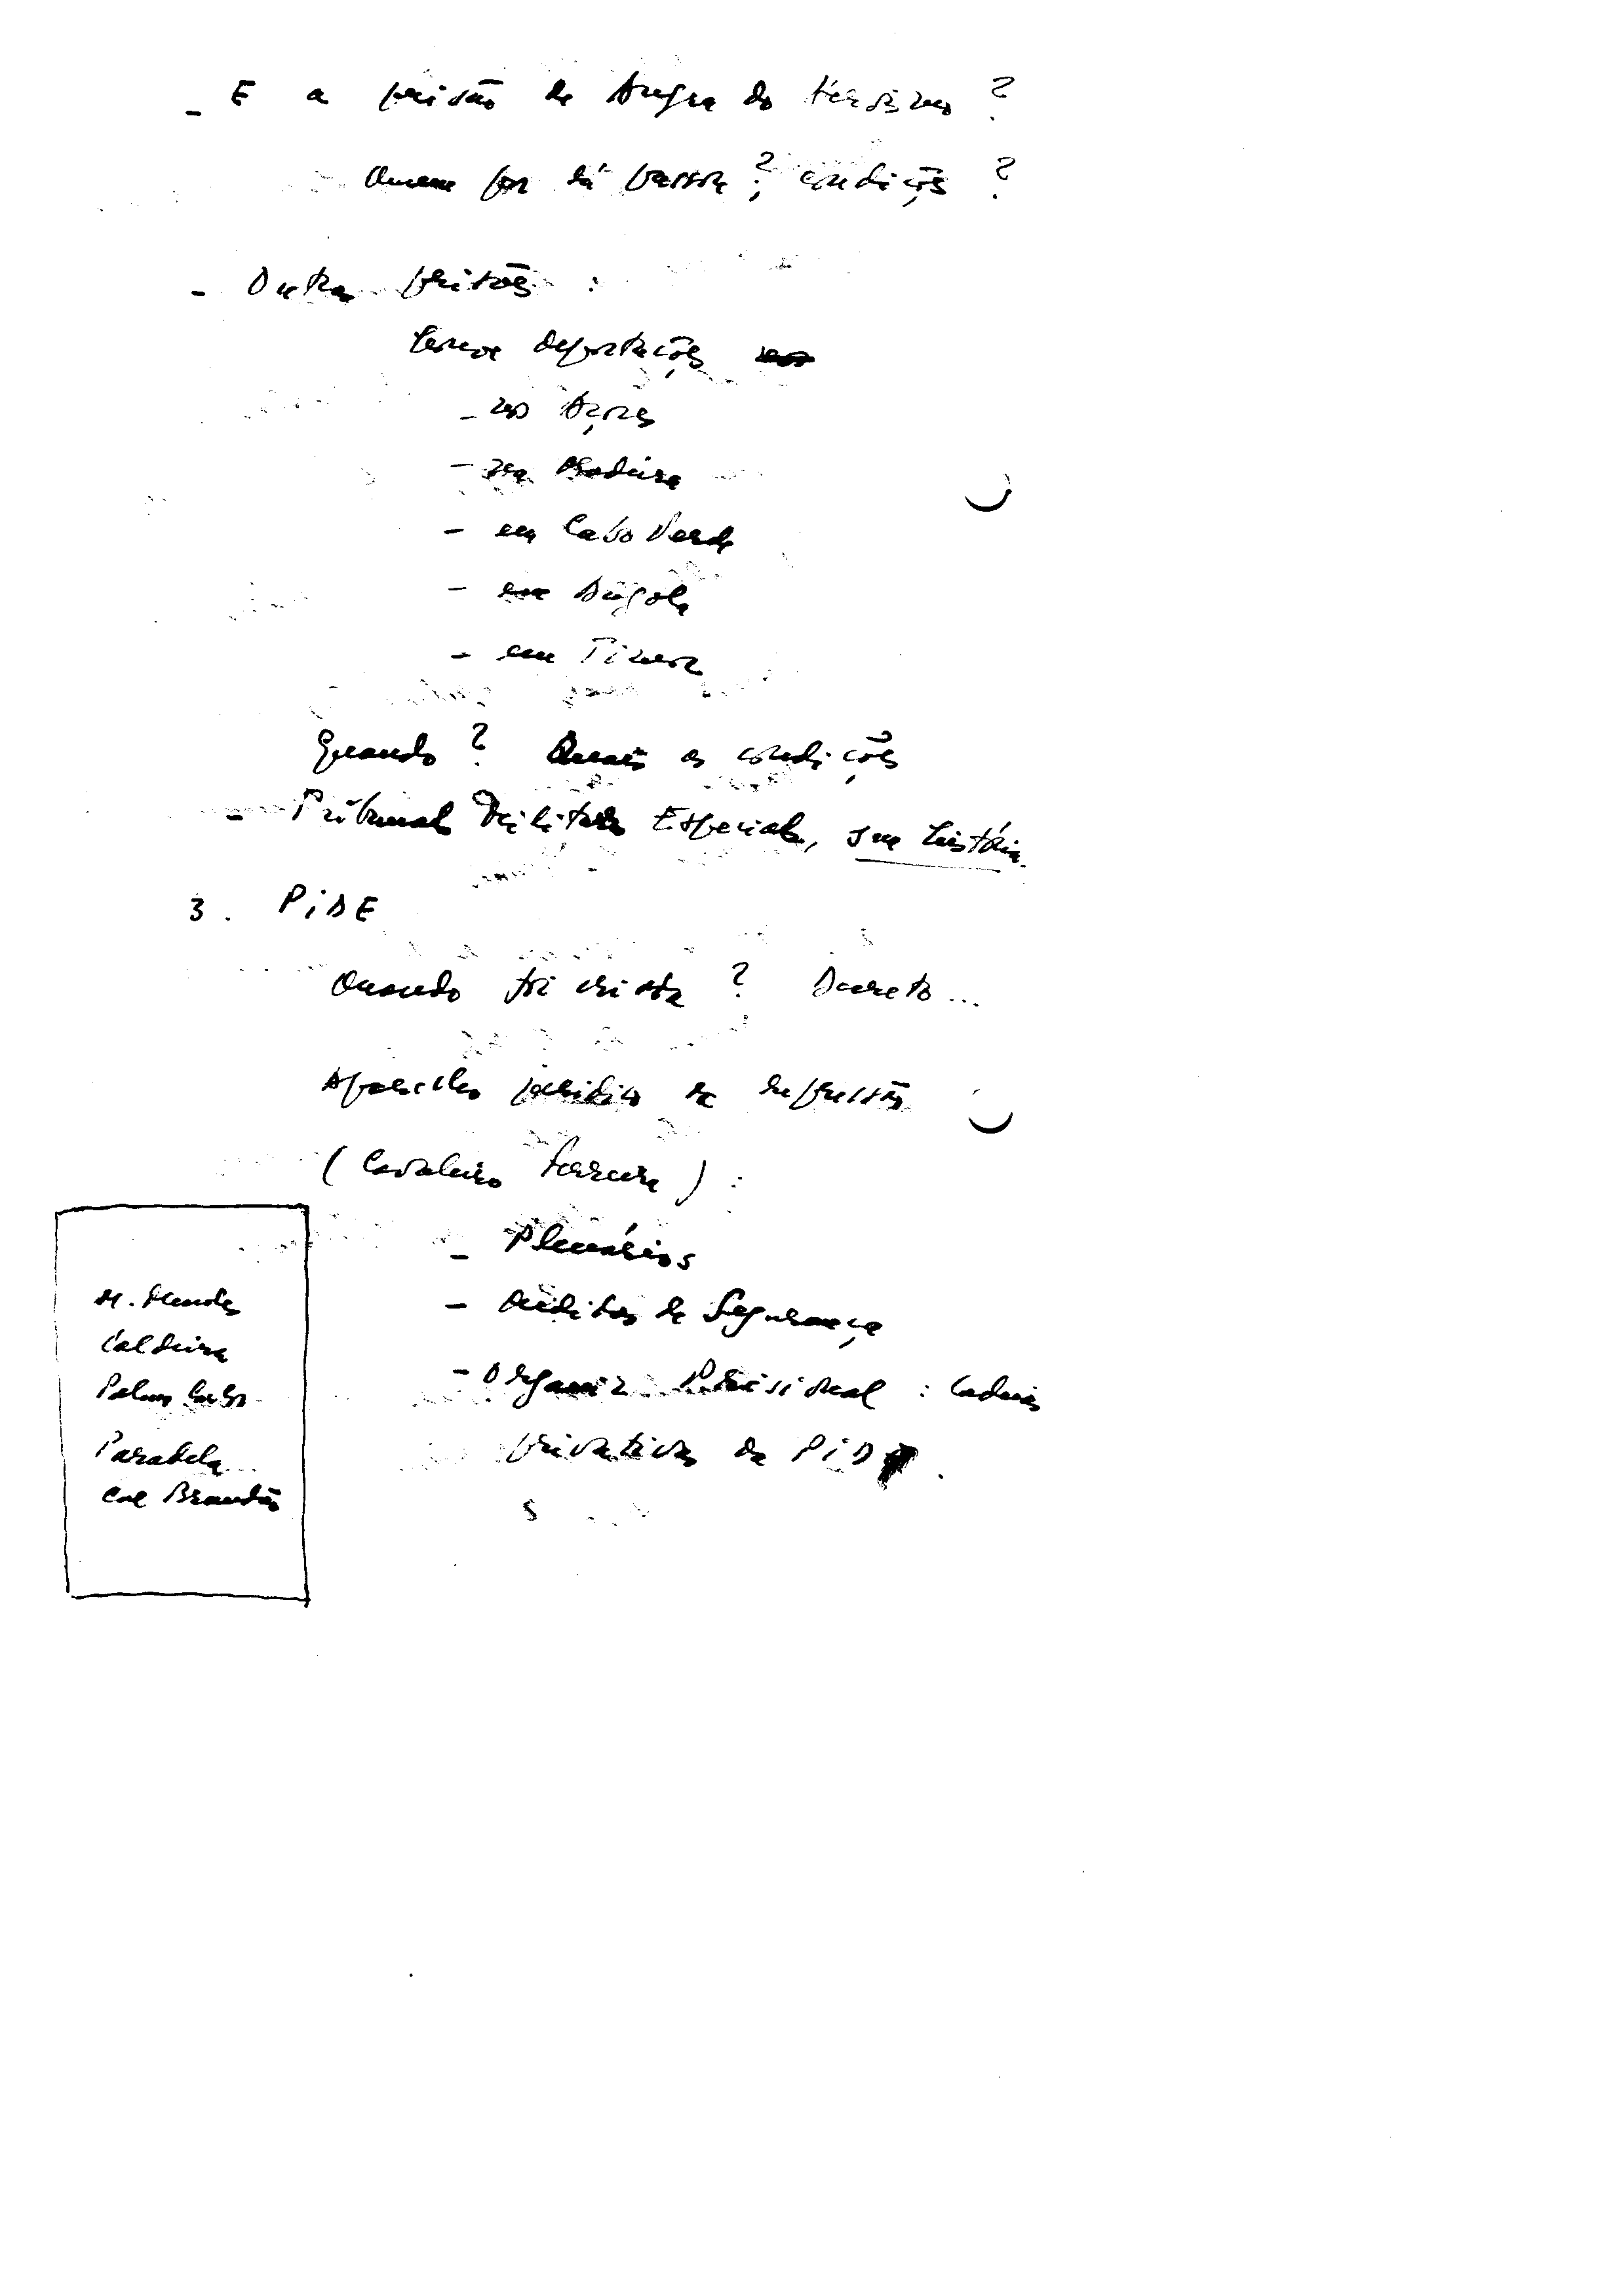 - E a prisão de Angra do Heroísmo ?
Quem por lá passou ?; condições ?
- Outras prisões :
houve deportações
- nos Açores
- na Madeira
- em Cabo Verde
- em Angola
- em Timor
Quando ? Quais as condições
- Tribunais Militares Especiais, sua história.
3. PIDE
Quando foi criada ? Decreto ...
Aparelho jurídico de repressão
(Cavaleiro Ferreira) :
- Plenários
- Medidas de Segurança
- Organiz. Prisional : Cadeias
privativas da PIDE.
M. Mendes
Caldeira
Palma Carlos
Paradela
Cal Brandão